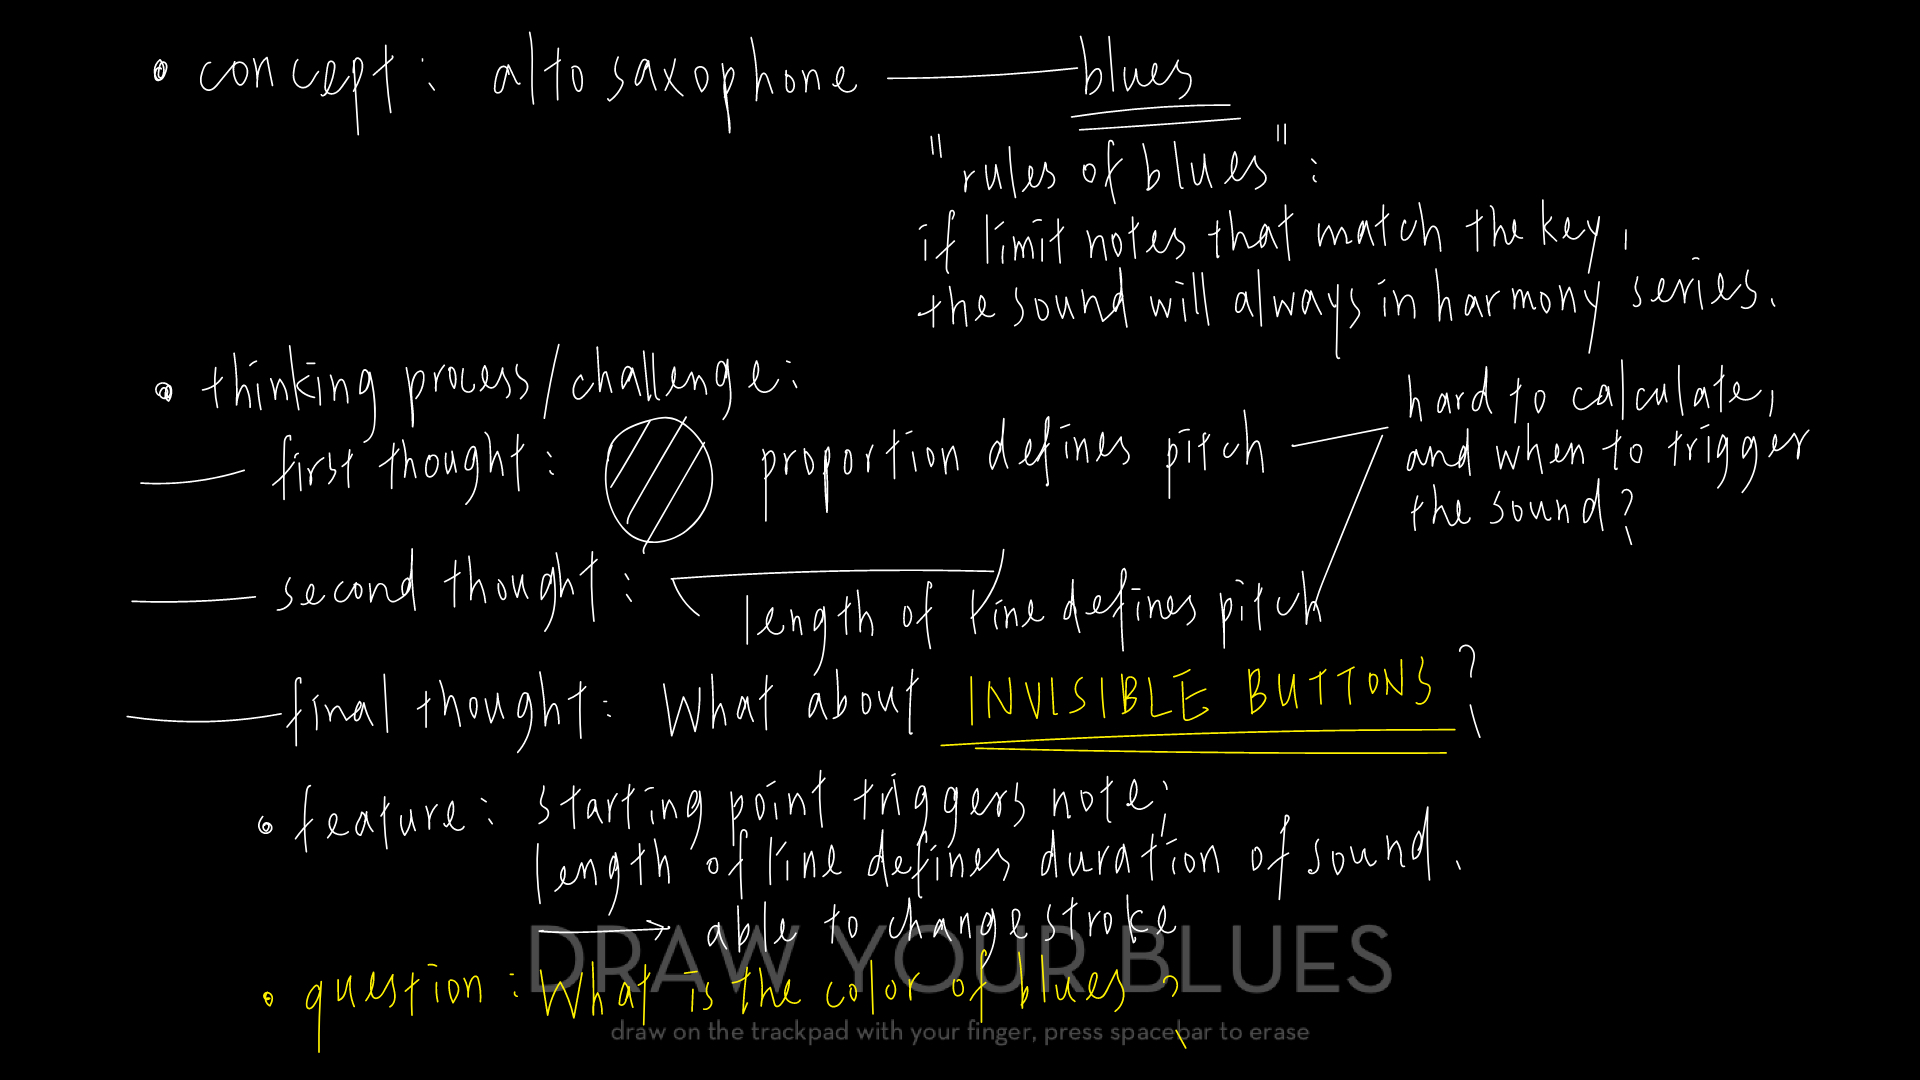 • concept: alto saxophone — blues
"rules of blues":
if limit notes that match the key,
the sound will always in harmony series.
• thinking process/challenge:
— first thought: proportion defines pitch —
hard to calculate,
and when to trigger
the sound?
— second thought: length of line defines pitch
— final thought: What about INVISIBLE BUTTONS?
• feature: starting point triggers note;
length of line defines duration of sound.
→ able to change stroke
DRAW YOUR BLUES
• question: What is the color of blues?
draw on the trackpad with your finger, press spacebar to erase